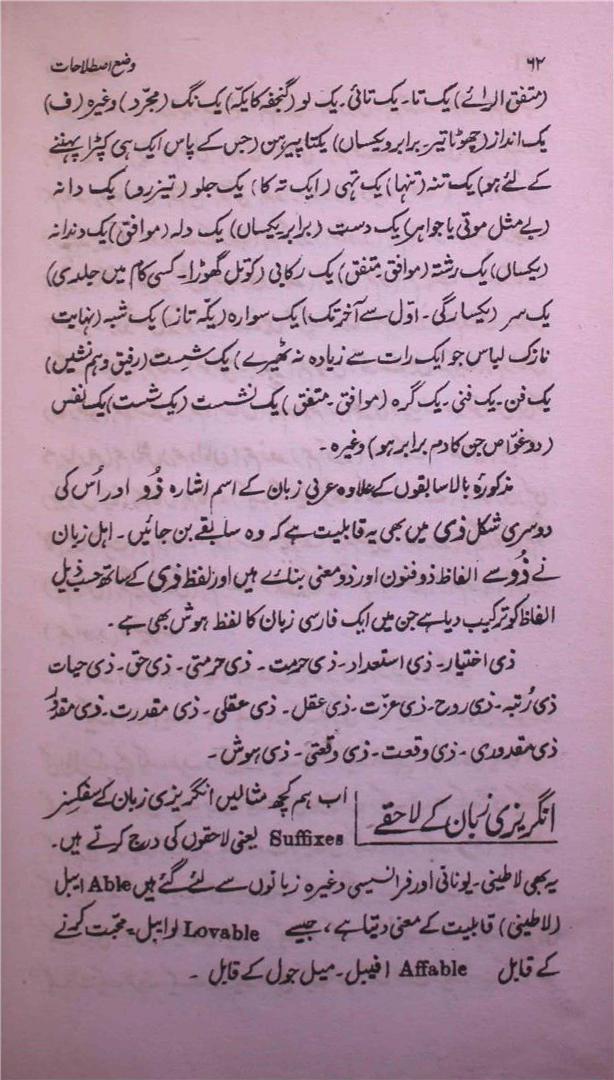 ۶۲ وضع اصطلاحات
(متفق الرائے) یک تا۔ یک تائی۔ یک لو (گنجفہ کا یکہ) یک نگ (مجرّد) وغیرہ (ف)
یک انداز (چھوٹا تیر۔ برابر ویکساں) یکتا پیرہن (جس کے پاس ایک ہی کپڑا پہننے
کے لئے ہو) یک تنہ (تنہا) یک تہی (ایک تہ کا) یک جلو (تیز رو) یک دانہ
(بے مثل موتی یا جواہر) یک دست (برابر یکساں) یک دلہ (موافق) یک دندانہ
(یکساں) یک رشتہ (موافق۔ متفق) یک رکابی (کوتل گھوڑا۔ کسی کام میں جلدی)
یک سر (یکسارگی۔ اوّل سے آخر تک) یک سوارہ (یکّہ تاز) یک شبہ (نہایت
نازک لباس جو ایک رات سے زیادہ نہ ٹھیرے) یک شِست (رفیق وہم نشیں)
یک فن۔ یک فنی۔ یک گرہ (موافق۔ متفق) یک نشست (یک شست) یک نفس
(دو غوّاص جن کا دم برابر ہو) وغیرہ۔
مذکورۂ بالا سابقوں کے علاوہ عربی زبان کے اسم اشارہ ذُو اور اُس کی
دوسری شکل ذی میں بھی یہ قابلیت ہے کہ وہ سابقے بن جائیں۔ اہل زبان
نے ذُو سے الفاظ ذو فنون اور ذو معنی بنائے ہیں اور لفظ ذی کے ساتھ حسب ذیل
الفاظ کو ترکیب دیا ہے جن میں ایک فارسی زبان کا لفظ ہوش بھی ہے۔
ذی اختیار۔ ذی استعداد۔ ذی حرمت۔ ذی حرمتی۔ ذی حق۔ ذی حیات
ذی رُتبہ۔ ذی روح۔ ذی عزّت۔ ذی عقل۔ ذی عقلی۔ ذی مقدرت۔ ذی مقدور
ذی مقدوری۔ ذی وقعت۔ ذی وقعتی۔ ذی ہوش۔
انگریزی زبان کے لاحقے اب ہم کچھ مثالیں انگریزی زبان کے سفکسز
Suffixes یعنی لاحقوں کی درج کرتے ہیں۔
یہ بھی لاطینی۔ یونانی اور فرانسیسی وغیرہ زبانوں سے لئے گئے ہیں Able ایبل
(لاطینی) قابلیت کے معنی دیتا ہے، جیسے Lovable لوایبل۔ محبّت کرنے
کے قابل Affable افیبل۔ میل جول کے قابل۔